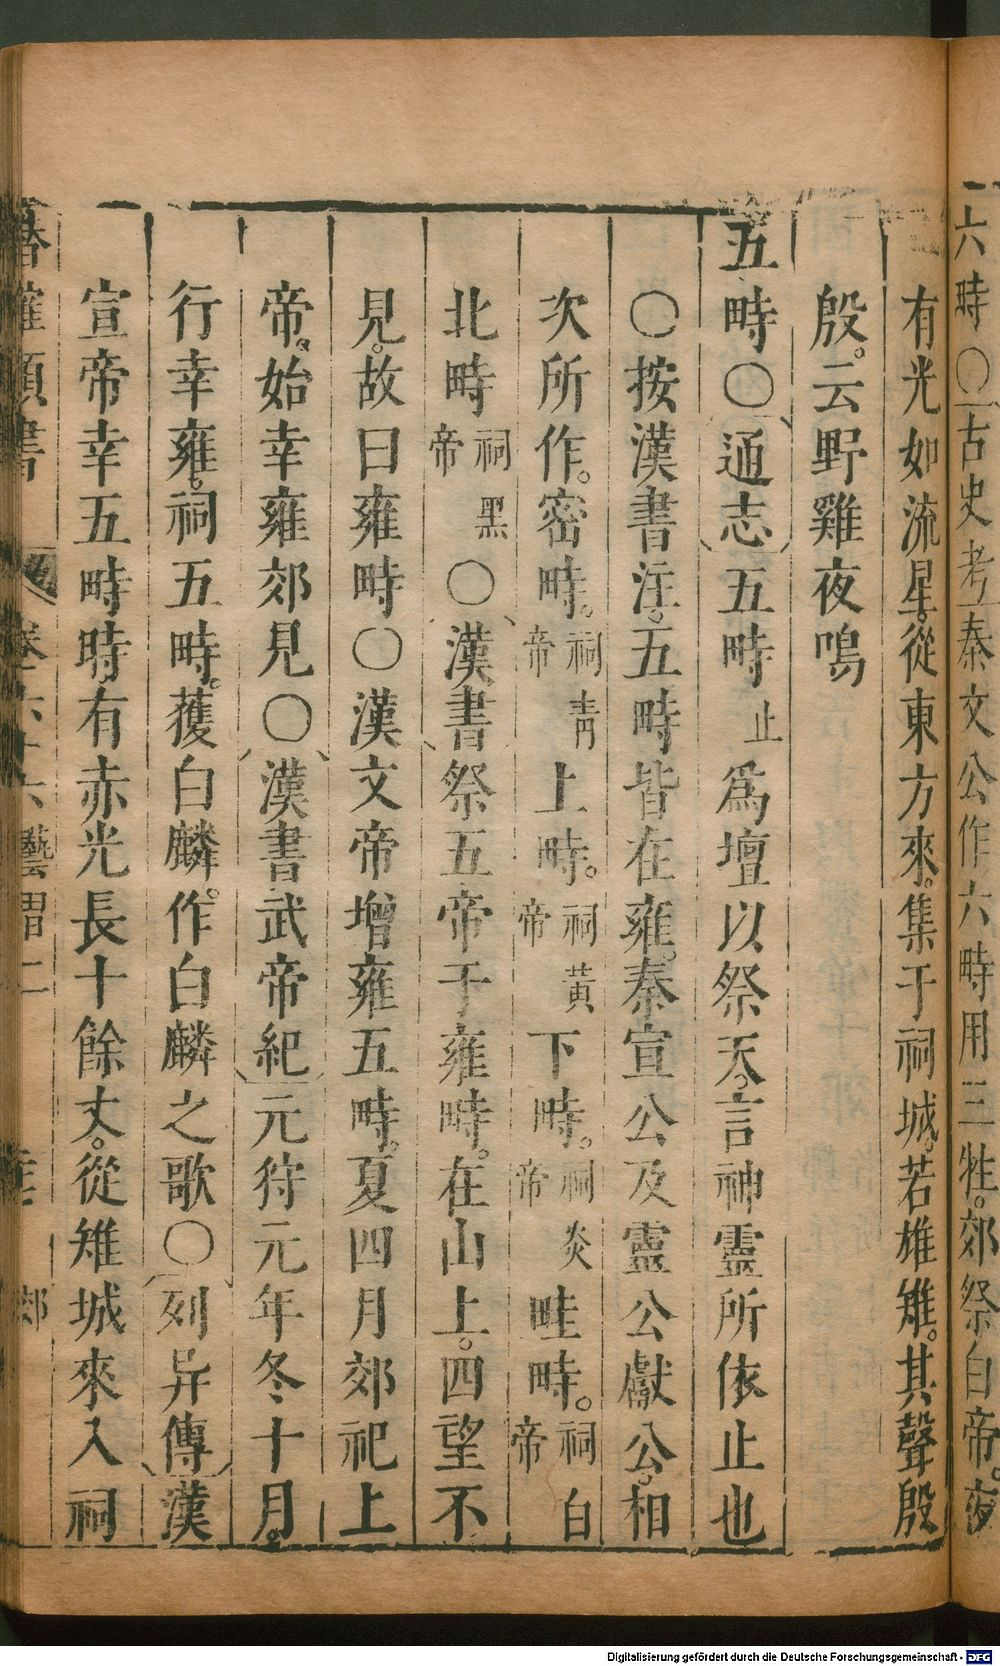 六畤〇古史考秦文公作六畤用三牲。郊祭白帝。夜
有光如流星。從東方來。集于祠城。若雄雉。其聲殷
殷。云野雞夜鳴
五畤〇通志五畤止爲壇以祭天。言神靈所依止也
〇按漢書注。五畤皆在雍。秦宣公及靈公獻公。相
次所作。密畤。祠青帝上畤。祠黃帝下畤。祠炎帝畦畤。祠白帝
北畤祠黑帝〇漢書祭五帝于雍畤。在山上。四望不
見。故曰雍畤〇漢文帝增雍五畤。夏四月郊祀上
帝。始幸雍郊見〇漢書武帝紀元狩元年冬十月。
行幸雍。祠五畤。獲白麟。作白麟之歌〇列异傳漢
宣帝幸五畤時。有赤光長十餘丈。從雉城來入祠
卷六十六 藝習二 郊
Digitalisierung gefördert durch die Deutsche Forschungsgemeinschaft - DFG